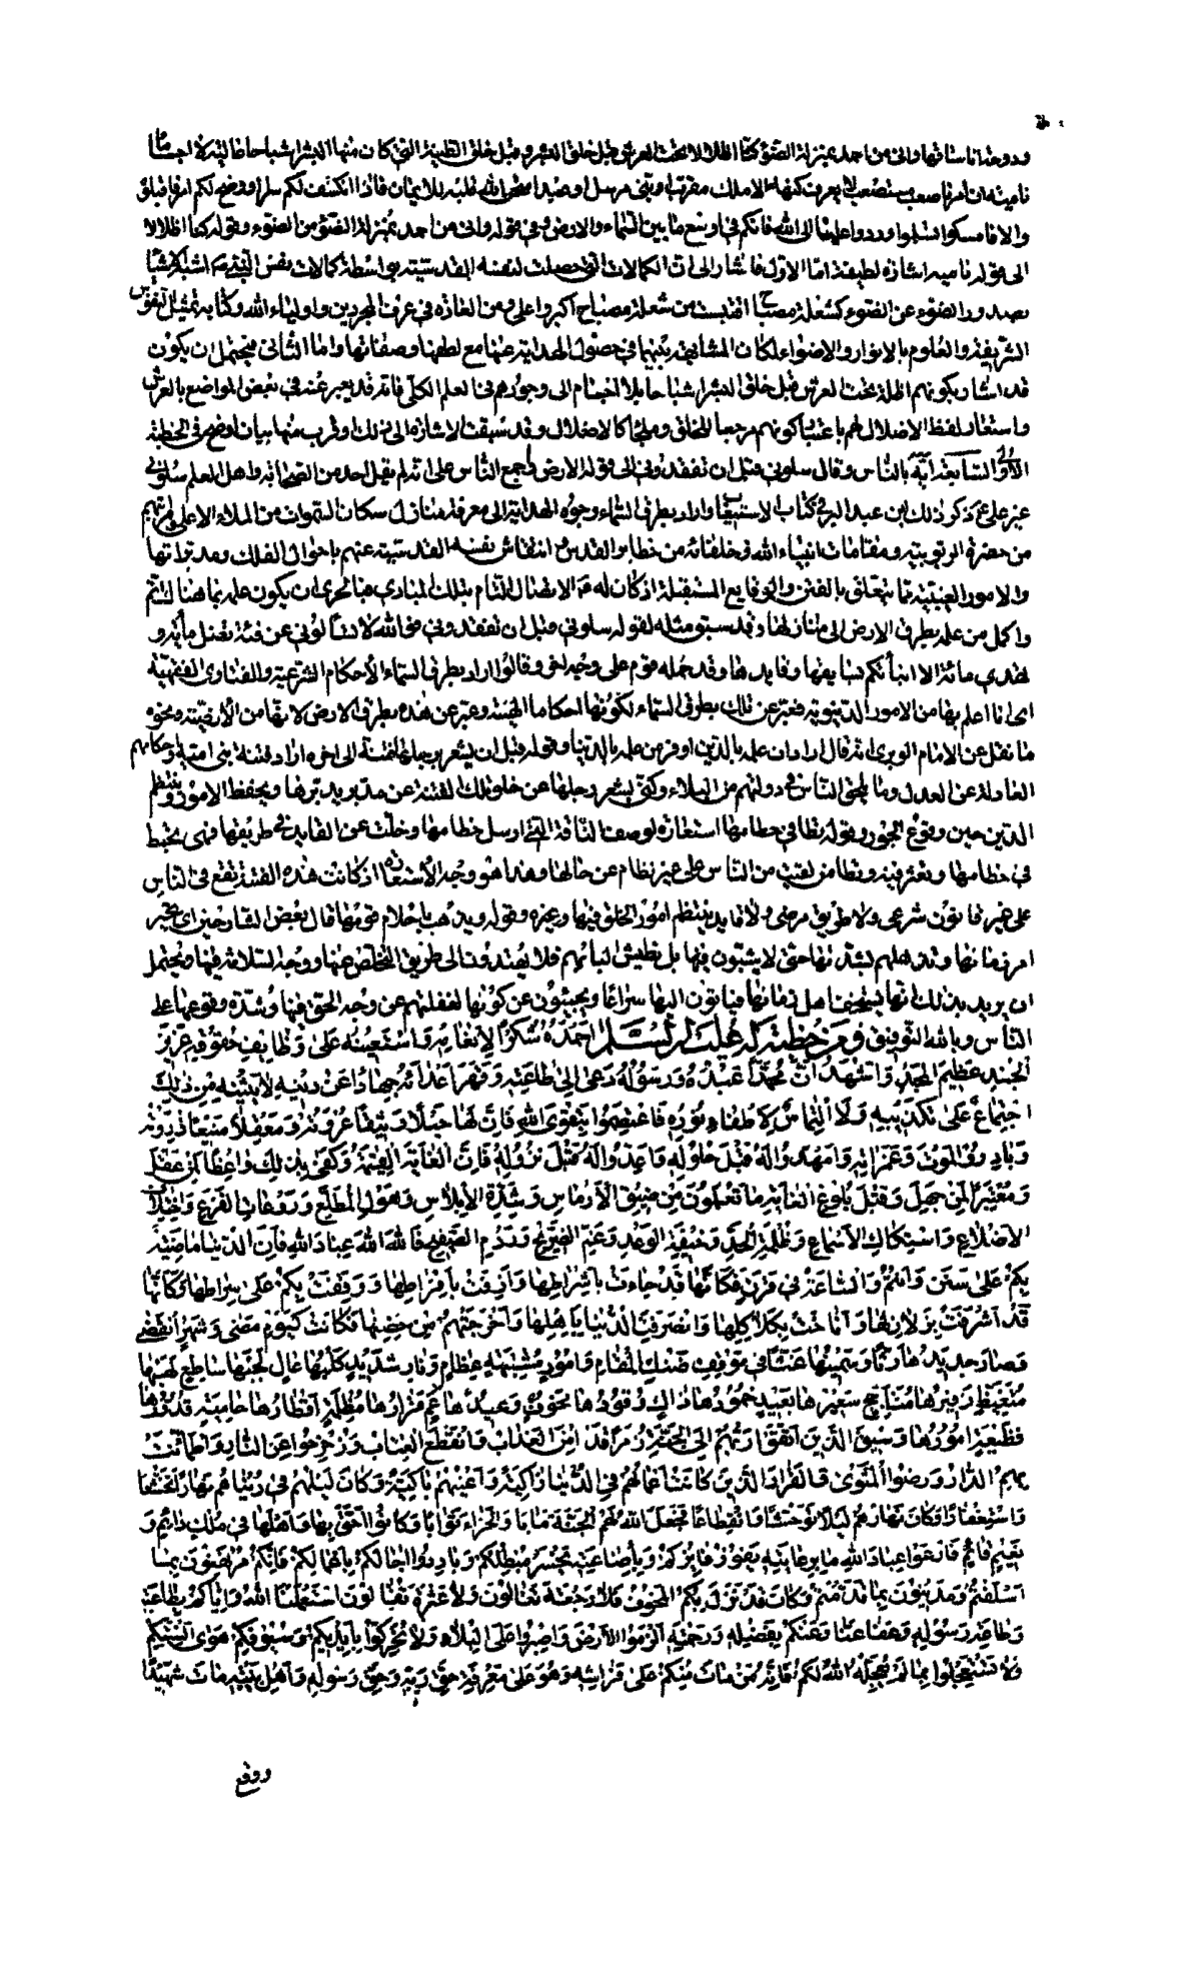 ودوحة انا ساقها وانى من احمد بمنزلة الضوء من الضوء كنا اظلالا تحت العرش قبل خلق البشر وقبل خلق الطينة التى كان منها البشر اشباحا خالية لا اجساما
نامية ان امرنا صعب مستصعب لا يعرف كنهه الا ملك مقرب او نبى مرسل او عبد امتحن الله قلبه للايمان فاذا انكشف لكم سر او وضح لكم امر فاقبلوه
والا فامسكوا تسلموا وردوا علمنا الى الله فانكم فى اوسع ما بين السماء والارض وفى قوله وانى من احمد بمنزلة الضوء من الضوء وقوله كنا اظلالا
الى قوله نامية اشارة لطيفة اما الاول فاشار الى ان الكمالات التى حصلت لنفسه القدسية بواسطة كمالات نفس النبى
بصدور الضوء عن الضوء كشعلة مصباح اقتبست من شعلة مصباح اكبر واعلى ومن العادة فى عرف المجردين واولياء الله وكتابه تمثيل النفوس
الشريفة والعلوم بالانوار والاضواء لمكان المشابهة بينهما فى حصول الهداية عنها مع لطفها وصفائها واما الثانى فيحتمل ان يكون
قد اشار بكونهم اظلة تحت العرش قبل خلق البشر اشباحا بلا اجسام الى وجودهم فى العلم الكلى فانه قد يعبر عنه فى بعض المواضع بالعرش
واستعار لفظ الاضلال لهم باعتبار كونهم مرجعا للخلق وملجأ كالاضلال وقد سبقت الاشارة الى ذلك وقرب منها بيان اوضح فى الخطبة
الأولى السابعة ايه بالناس وقال سلونى قبل ان تفقدونى الى قوله الارض واجمع الناس على انه لم يقل احد من الصحابة واهل العلم سلونى
غير على ع ذكر ذلك ابن عبد البر فى كتاب الاستيعاب واراد بطرق السماء وجوه الهداية الى معرفة منازل سكان السموات من الملاء الاعلى ومراتبهم
من حضرة الربوبية ومقامات انبياء الله وخلفائه من حظاير القدس وانتقاش نفسه القدسية عنهم باحوال الفلك ومدبراتها
والامور الغيبية مما يتعلق بالفتن والوقايع المستقبلة اذ كان له ع الاتصال التام بتلك المبادى فبالحرى ان يكون علمه بما هناك اتم
واكمل من علمه بطرق الارض الى منازلها وقد سبق مثله لقوله سلونى قبل ان تفقدونى فو الله لا تسألونى عن فئة تضل مائة و
تهدى مائة الا انبأتكم بسايقها وقايدها وقد حمله قوم على وجه اخر وقالوا اراد بطرق السماء الأحكام الشرعية والفتاوى الفقهية
اى انا اعلم بها من الامور الدنيوية فعبر عن تلك بطرق السماء لكونها احكاما الهية وعبر عن هذه بطرق الارض لانها من الأرضية ونحوه
ما نقل عن الامام الوبرى انه قال اراد ان علمه بالدين اوفر من علمه بالدنيا وقوله قبل ان يشغر برجلها فتنة الى اخره اراد فتنة بنى امية واحكامهم
العادلة عن العدل وما يلحق الناس فى دولتهم من البلاء وكنى بشغر رجلها عن خلو تلك الفتنة عن مدبر يدبرها ويحفظ الامور وينتظم
الدين حين وقوع الجور وقوله تطأ فى خطامها استعارة لوصف الناقة التى ارسل خطامها وخلت عن القايد فى طريقها فهى تخبط
فى خطامها وتعثر فيه وتطأ من لقيت من الناس على غير نظام عن حالها وهذا هو وجه الأستعارة اذ كانت هذه الفتنة تقع فى الناس
على غير قانون شرعى ولا طريق مرضى ولا قايد ينتظم امور الخلق فيها وغيره وقوله ويذهب باحلام قومها قال بعض الشارحين اى يتحير
اهل زمانها وتذهلهم لشدتها حتى لا يثبتون فيها بل تطيش البابهم فلا يهتدون الى طريق التخلص عنها ووجه السلامة فيها ويحتمل
ان يريد بذلك انها يستخف اهل زمانها فيأتون اليها سراعا ويجيبون عن كونها لغفلتهم عن وجه الحق فيها وشدة وقوعها على
الناس وبالله التوفيق ومن خطبة له عليه السلام احمده شكرا لإنعامه واستعينه على وظايف حقوقه عزيز
الجند عظيم المجد واشهد ان محمدا عبده ورسوله دعى الى طاعته وقهر اعدائه جهادا عن دينه لا يثنيه عن ذلك
اجتماع على تكذيبه ولا التماس لإطفاء نوره فاعتصموا بتقوى الله فان لها حبلا وثيقا عروته ومعقلا منيعا ذروته
وبادروا الموت وغمراته وامهدوا له قبل حلوله واعدوا له قبل نزوله فان الغاية القيمة وكفى بذلك واعظا لمن عقل
ومعتبرا لمن جهل وقبل بلوغ الغاية ما تعلمون من ضيق الارماس وشدة الابلاس وهول المطلع وروعات الفزع واختلاف
الاضلاع واستكاك الاسماع وظلمة اللحد وخيفة الوعد وغم الضريح وردم الصفيح فالله الله عباد الله فان الدنيا ماضية
بكم على سنن وانتم والساعة فى قرن فكانها قد جاءت باشراطها وأزفت بافراطها ووقفت بكم على صراطها وكانها
قد اشرفت بزلازلها وأناخت بكلاكلها وانصرفت الدنيا باهلها واخرجتهم من حضنها فكانت كيوم مضى وشهر انقضى
وصار جديدها رثا وسمينها غثا فى موقف ضنك المقام وامور مشتبهة عظام ونار شديد كلبها عال لجبها ساطع لهبها
متغيظ زفيرها متأجج سعيرها بعيد خمودها ذاك وقودها مخوف وعيدها عم قرارها مظلمة اقطارها حامية قدورها
فظيعة امورها وسيق الذين اتقوا ربهم الى الجنة زمرا قد امن العذاب وانقطع العتاب وزحزحوا عن النار واطمأنت
بهم الدار ورضوا المثوى والقرار الذين كانت اعمالهم فى الدنيا زاكية واعينهم باكية وكان ليلهم فى دنياهم نهارا تخشعا
واستغفارا وكان نهارهم ليلا توحشا وانقطاعا فجعل الله لهم الجنة مآبا والجزاء ثوابا وكانوا احق بها واهلها فى ملك دائم و
نعيم قائم فارعوا عباد الله ما برعايته يفوز فايزكم وباضاعته يخسر مبطلكم وبادروا اجالكم باعمالكم فانكم مرتهنون بما
اسلفتم ومدينون بما قدمتم وكان قد نزل بكم المخوف فلا رجعة تنالون ولا عثرة تقالون استعملنا الله واياكم بطاعته
وطاعة رسوله وعفا عنا وعنكم بفضله ورحمته الزموا الارض واصبروا على البلاء ولا تحركوا بايديكم وسيوفكم هوى السنتكم
ولا تستعجلوا بما لم يعجله الله لكم فانه من مات منكم على فراشه وهو على معرفة حق ربه وحق رسوله واهل بيته مات شهيدا
ووقع